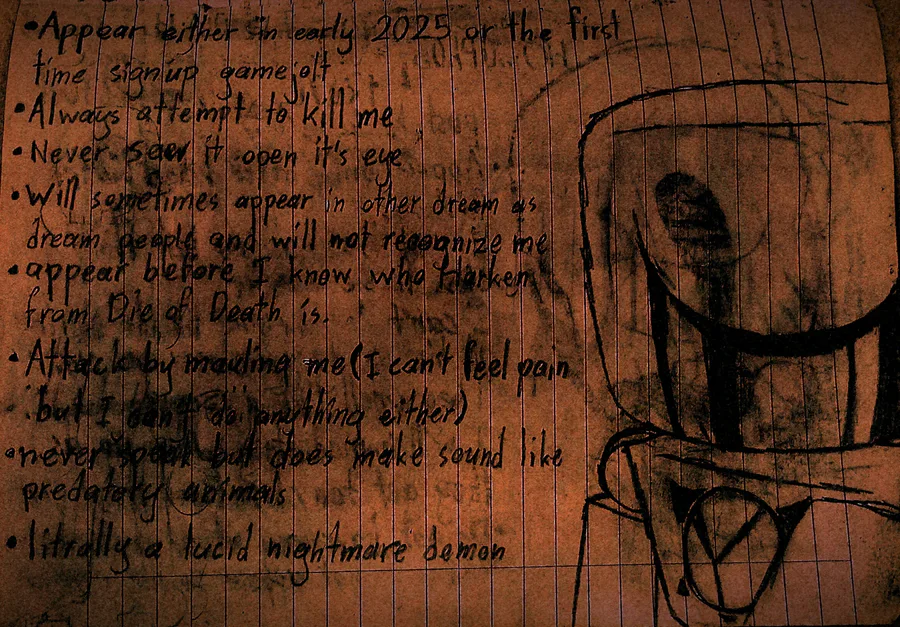 • Appear either in early 2025 or the first
time signup gamejolt
• Always attempt to kill me
• Never saw it open it's eye
• Will sometimes appear in other dream as
dream people and will not recognize me
• appear before I know who Harken
from Die of Death is.
• Attack by mauling me (I can't feel pain
but I can't do anything either)
• never speak but does make sound like
predatory animals
• litrally a lucid nightmare demon